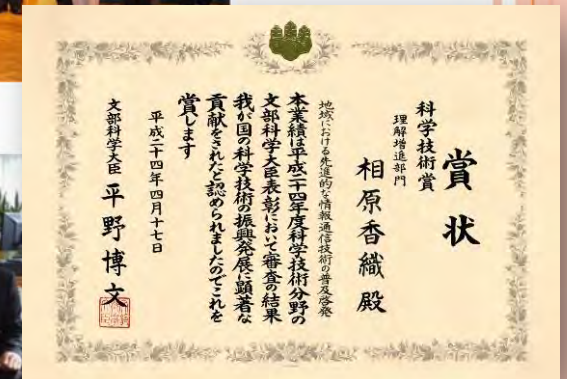 賞状
科学技術賞
理解増進部門
相原香織殿
地域における先進的な情報通信技術の普及啓発
本業績は平成二十四年度科学技術分野の
文部科学大臣表彰において審査の結果
我が国の科学技術の振興発展に顕著な
貢献をされたと認められましたのでこれを
賞します
平成二十四年四月十七日
文部科学大臣 平野博文